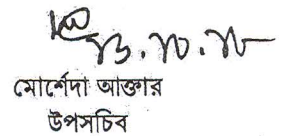 মোর্শেদা আক্তার
উপসচিব